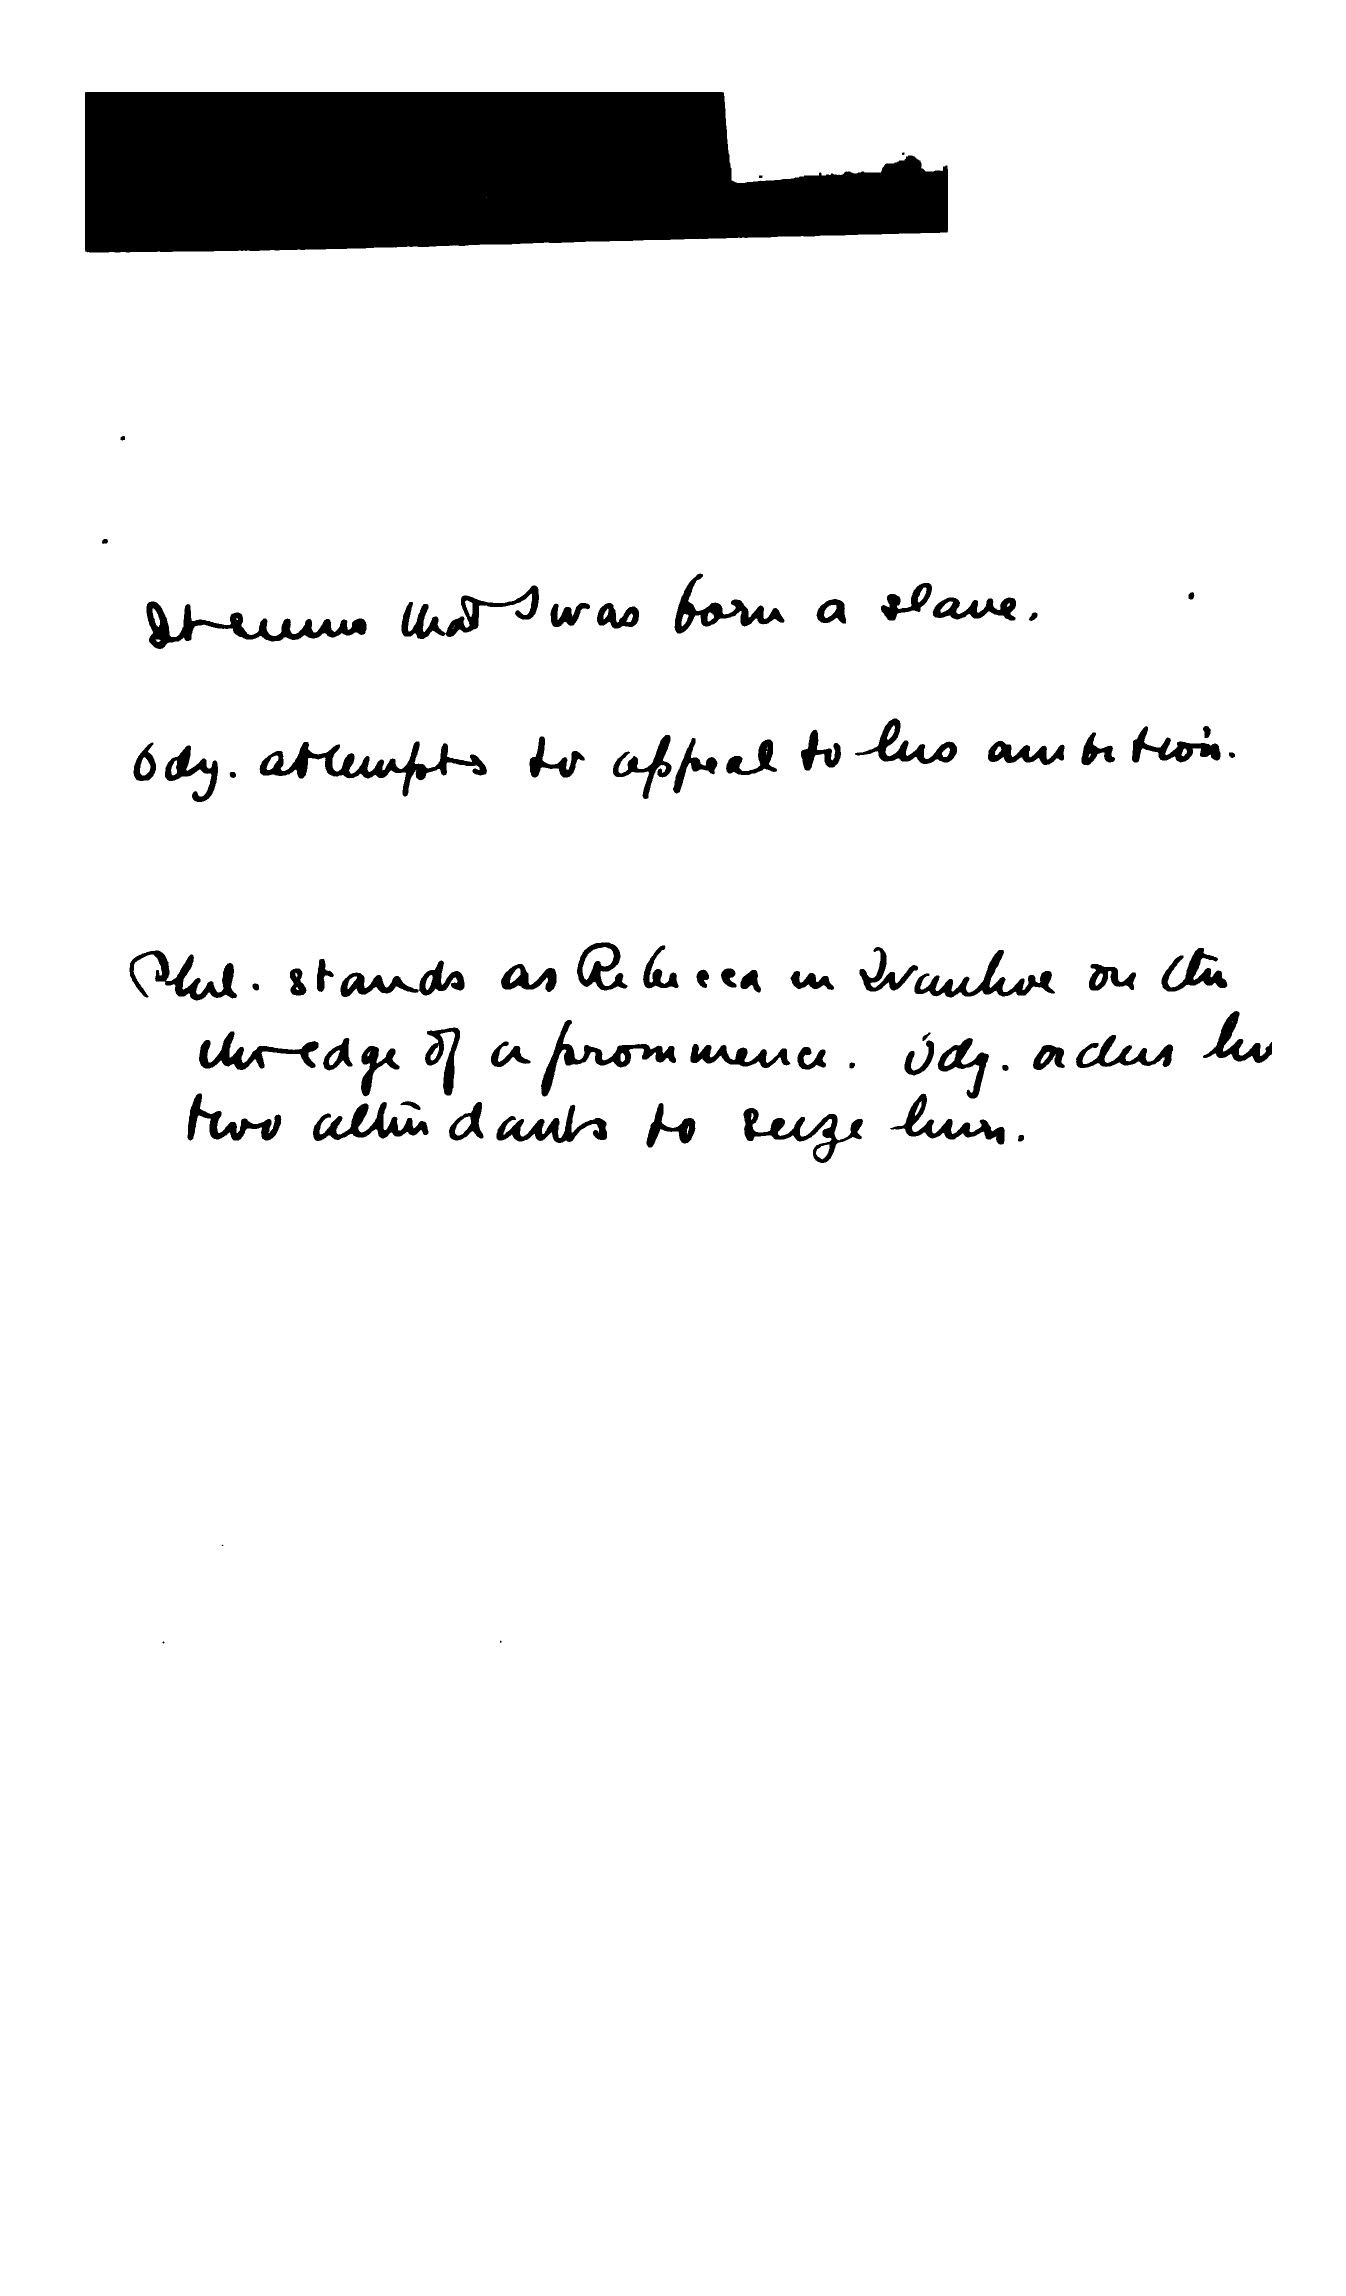 It seems that I was born a slave.
Ody. attempts to appeal to his ambition.
Phil. stands as Rebecca in Ivanhoe on the
edge of a prominence. Ody. orders his
two attendants to seize him.